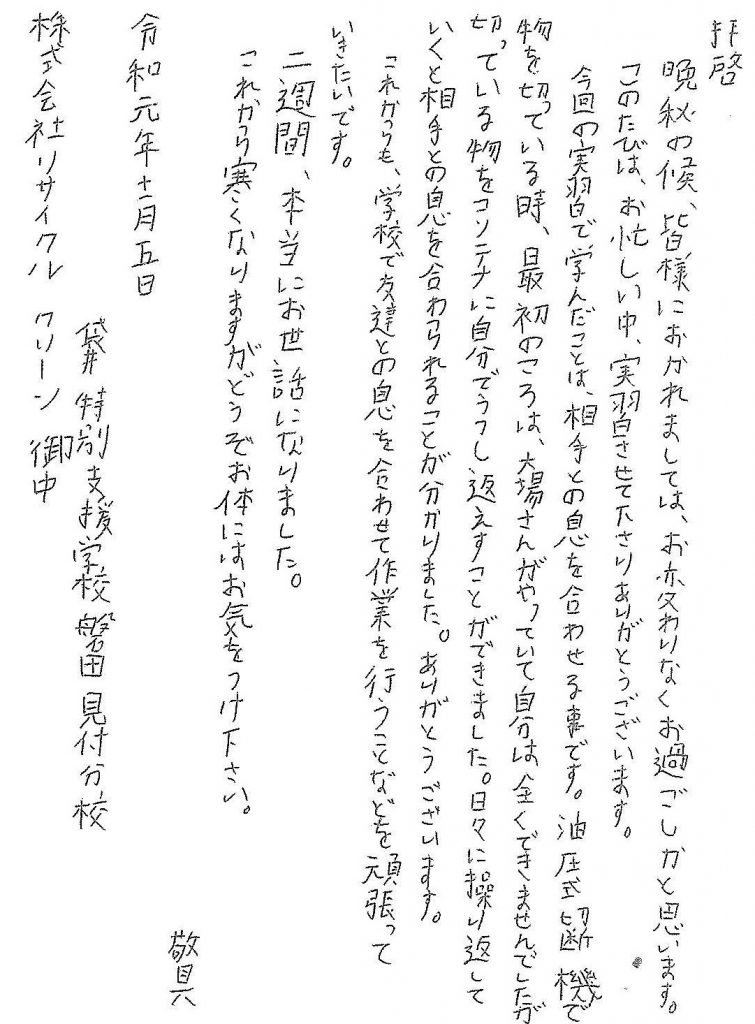 拝啓
晩秋の候、皆様におかれましては、お変わりなくお過ごしかと思います。
このたびは、お忙しい中、実習させて下さりありがとうございます。
今回の実習で学んだことは、相手との息を合わせる事です。油圧式切断機で
物を切っている時、最初のころは、大場さんがやっていて自分は全くできませんでしたが
切っている物をコンテナに自分でうつし返えすことができました。日々に操り返して
いくと相手との息を合わられることが分かりました。ありがとうございます。
これからも、学校で友達との息を合わせて作業を行うことなどを頑張って
いきたいです。
二週間、本当にお世話になりました。
これから寒くなりますがどうぞお体にはお気をつけ下さい。
敬具
令和元年十一月五日
袋井特別支援学校磐田見付分校
株式会社リサイクルクリーン御中